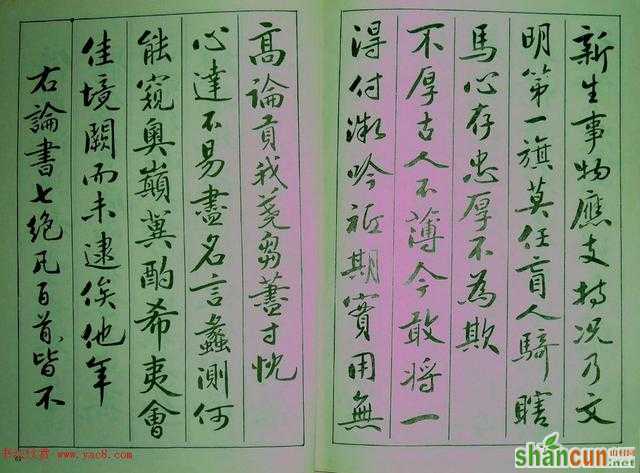 新生事物應支持况乃文
明第一旗莫任盲人騎瞎
馬心存忠厚不為欺
不厚古人不薄今敢將一
得付微吟祗期實用無
高論貢我蕘芻藎寸忱
心達不易盡名言蠡測何
能窺奥巔冀酌希夷會
佳境闕而未逮俟他年
右論書七絶凡百首皆不
书法欣赏 www.yac8.com
shancun
山村网
.net